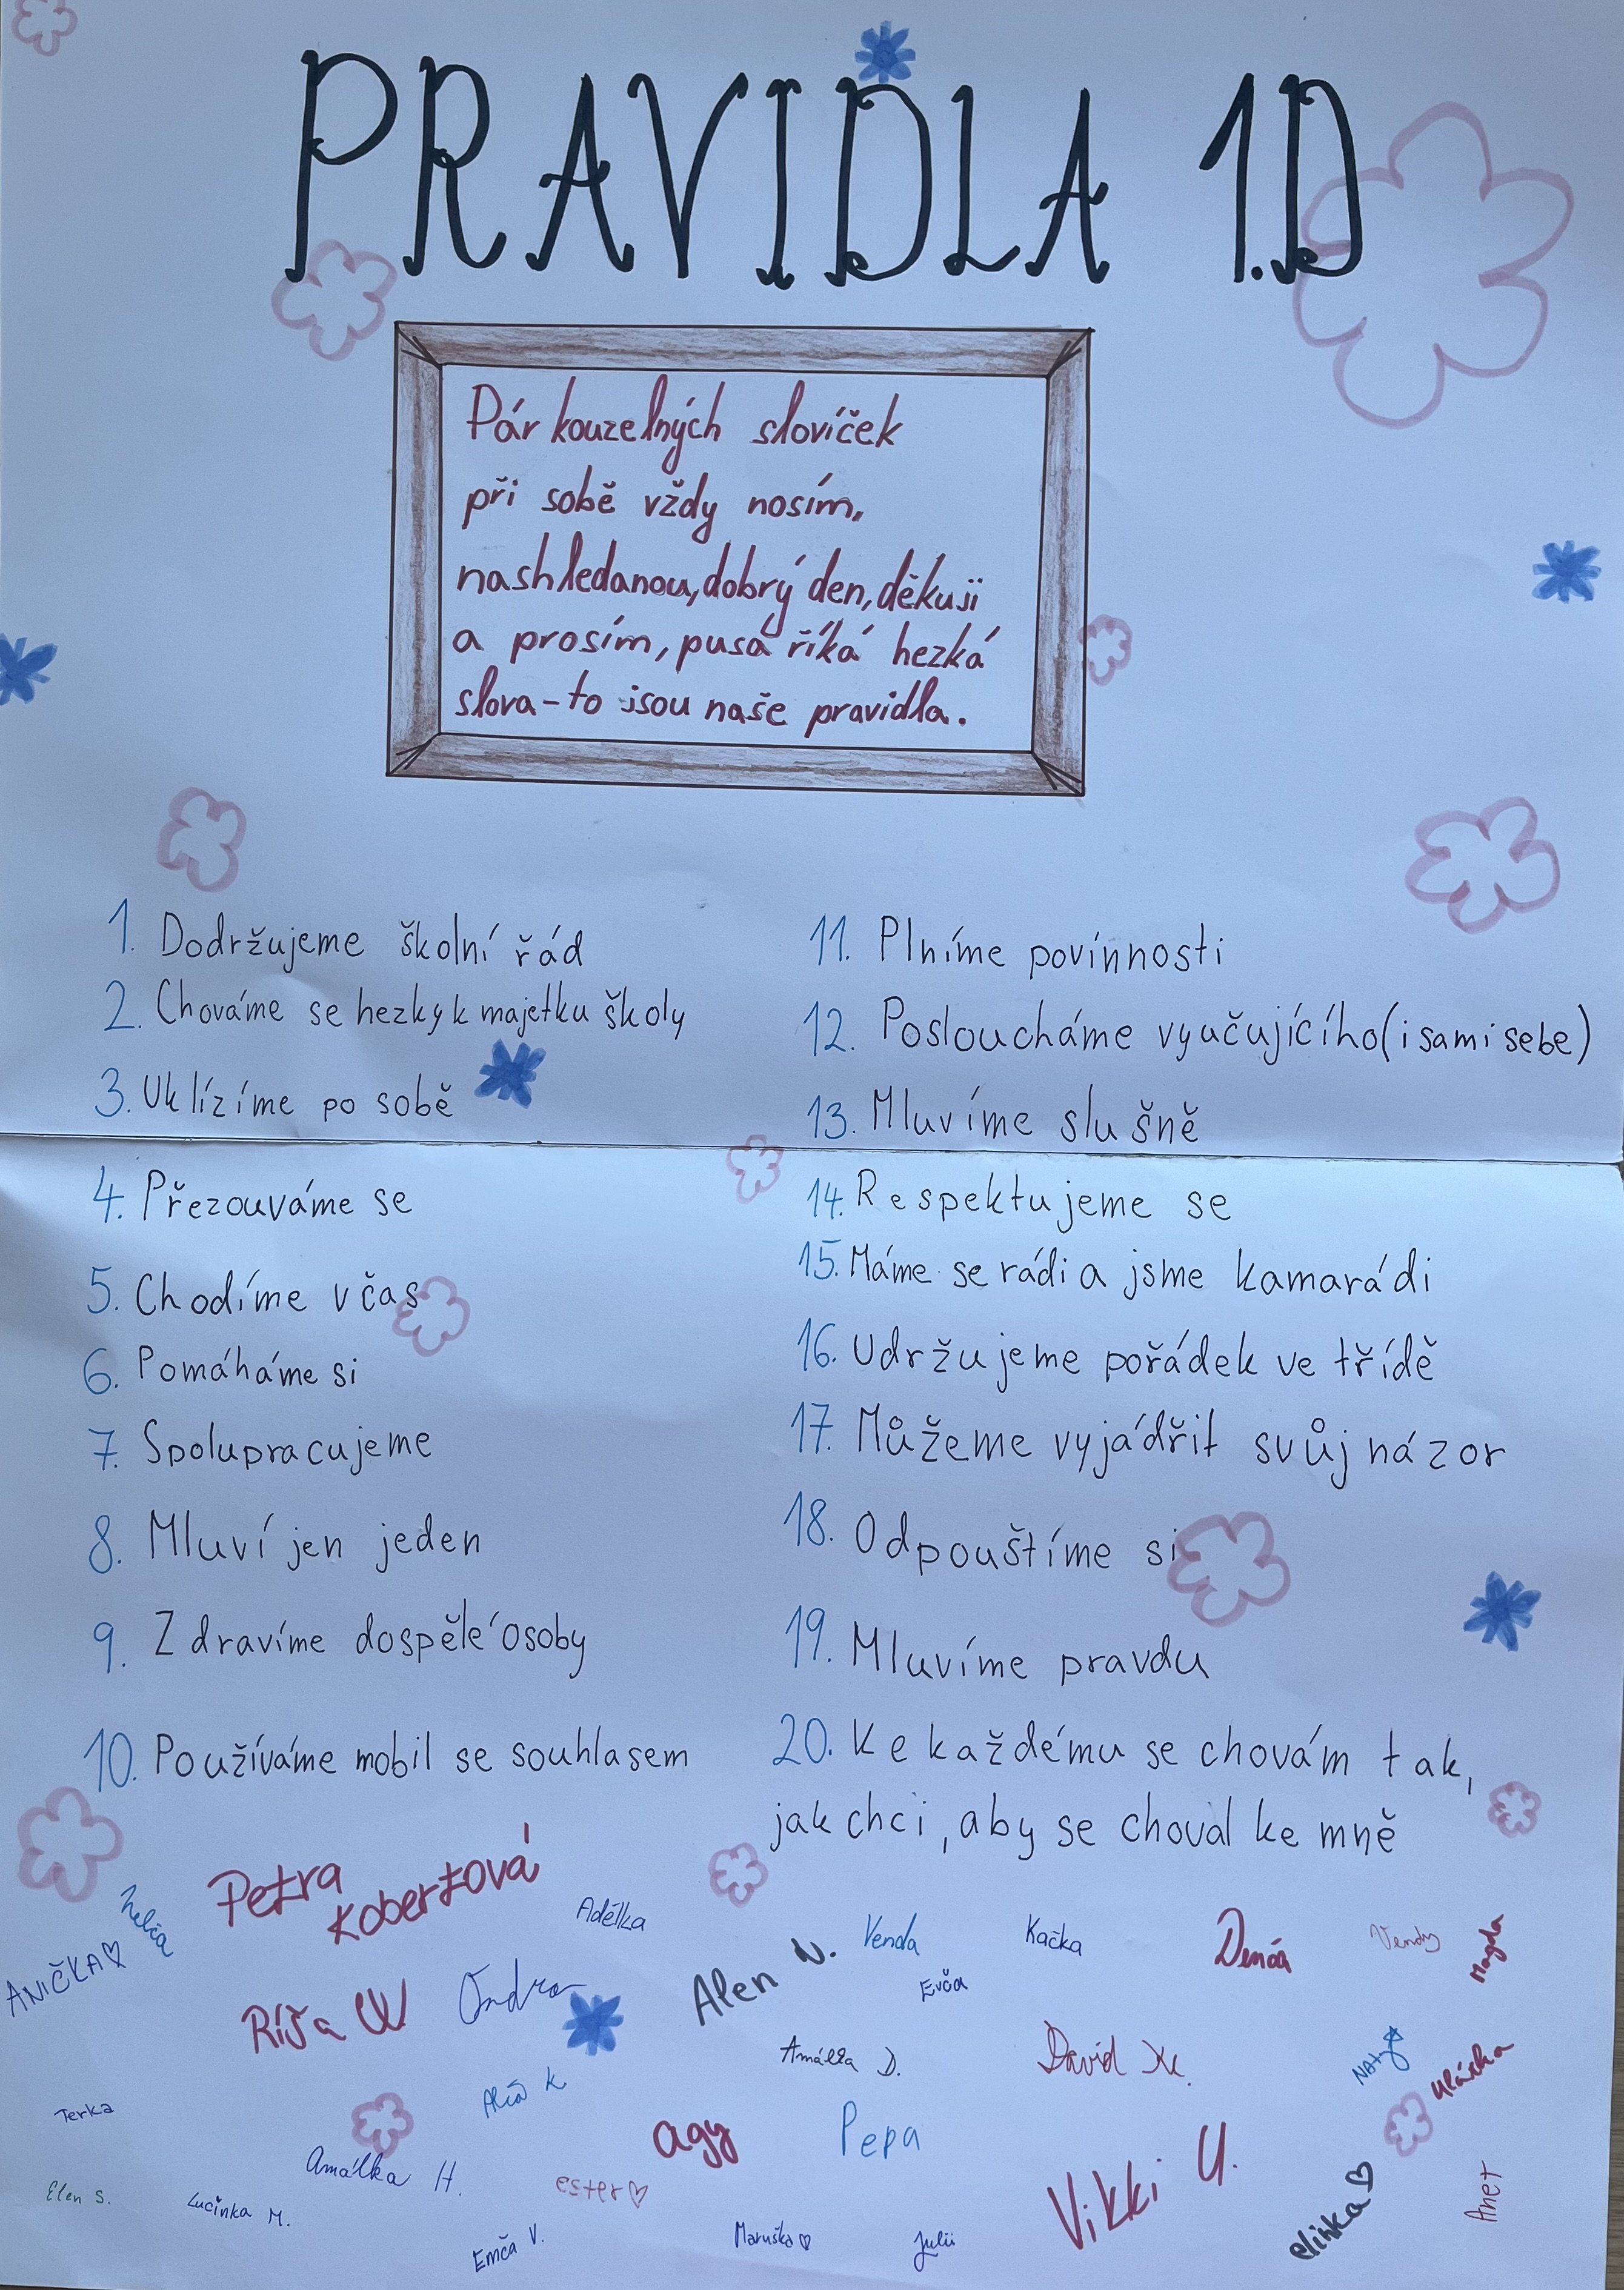 PRAVIDLA 1.D
Pár kouzelných slovíček
při sobě vždy nosím,
nashledanou, dobrý den, děkuji
a prosím, pusa říká hezká
slova - to jsou naše pravidla.
1. Dodržujeme školní řád
2. Chováme se hezky k majetku školy
3. Uklízíme po sobě
4. Přezouváme se
5. Chodíme včas
6. Pomáháme si
7. Spolupracujeme
8. Mluví jen jeden
9. Zdravíme dospělé osoby
10. Používáme mobil se souhlasem
11. Plníme povinnosti
12. Posloucháme vyučujícího (i sami sebe)
13. Mluvíme slušně
14. Respektujeme se
15. Máme se rádi a jsme kamarádi
16. Udržujeme pořádek ve třídě
17. Můžeme vyjádřit svůj názor
18. Odpouštíme si
19. Mluvíme pravdu
20. Ke každému se chovám tak,
jak chci, aby se choval ke mně
Petra
Kobertová
Adélka
ANIČKA♡
Alen N.
Venda
Kačka
Vendy
Magda
Evča
Ríša W
Ondra
Amálka D.
David K.
NATY
Terka
Agy
Pepa
Amálka H.
ester♡
Vikki U.
elinka♡
Anet
Elen S.
Lucinka M.
Emča V.
Maruška♡
Julii